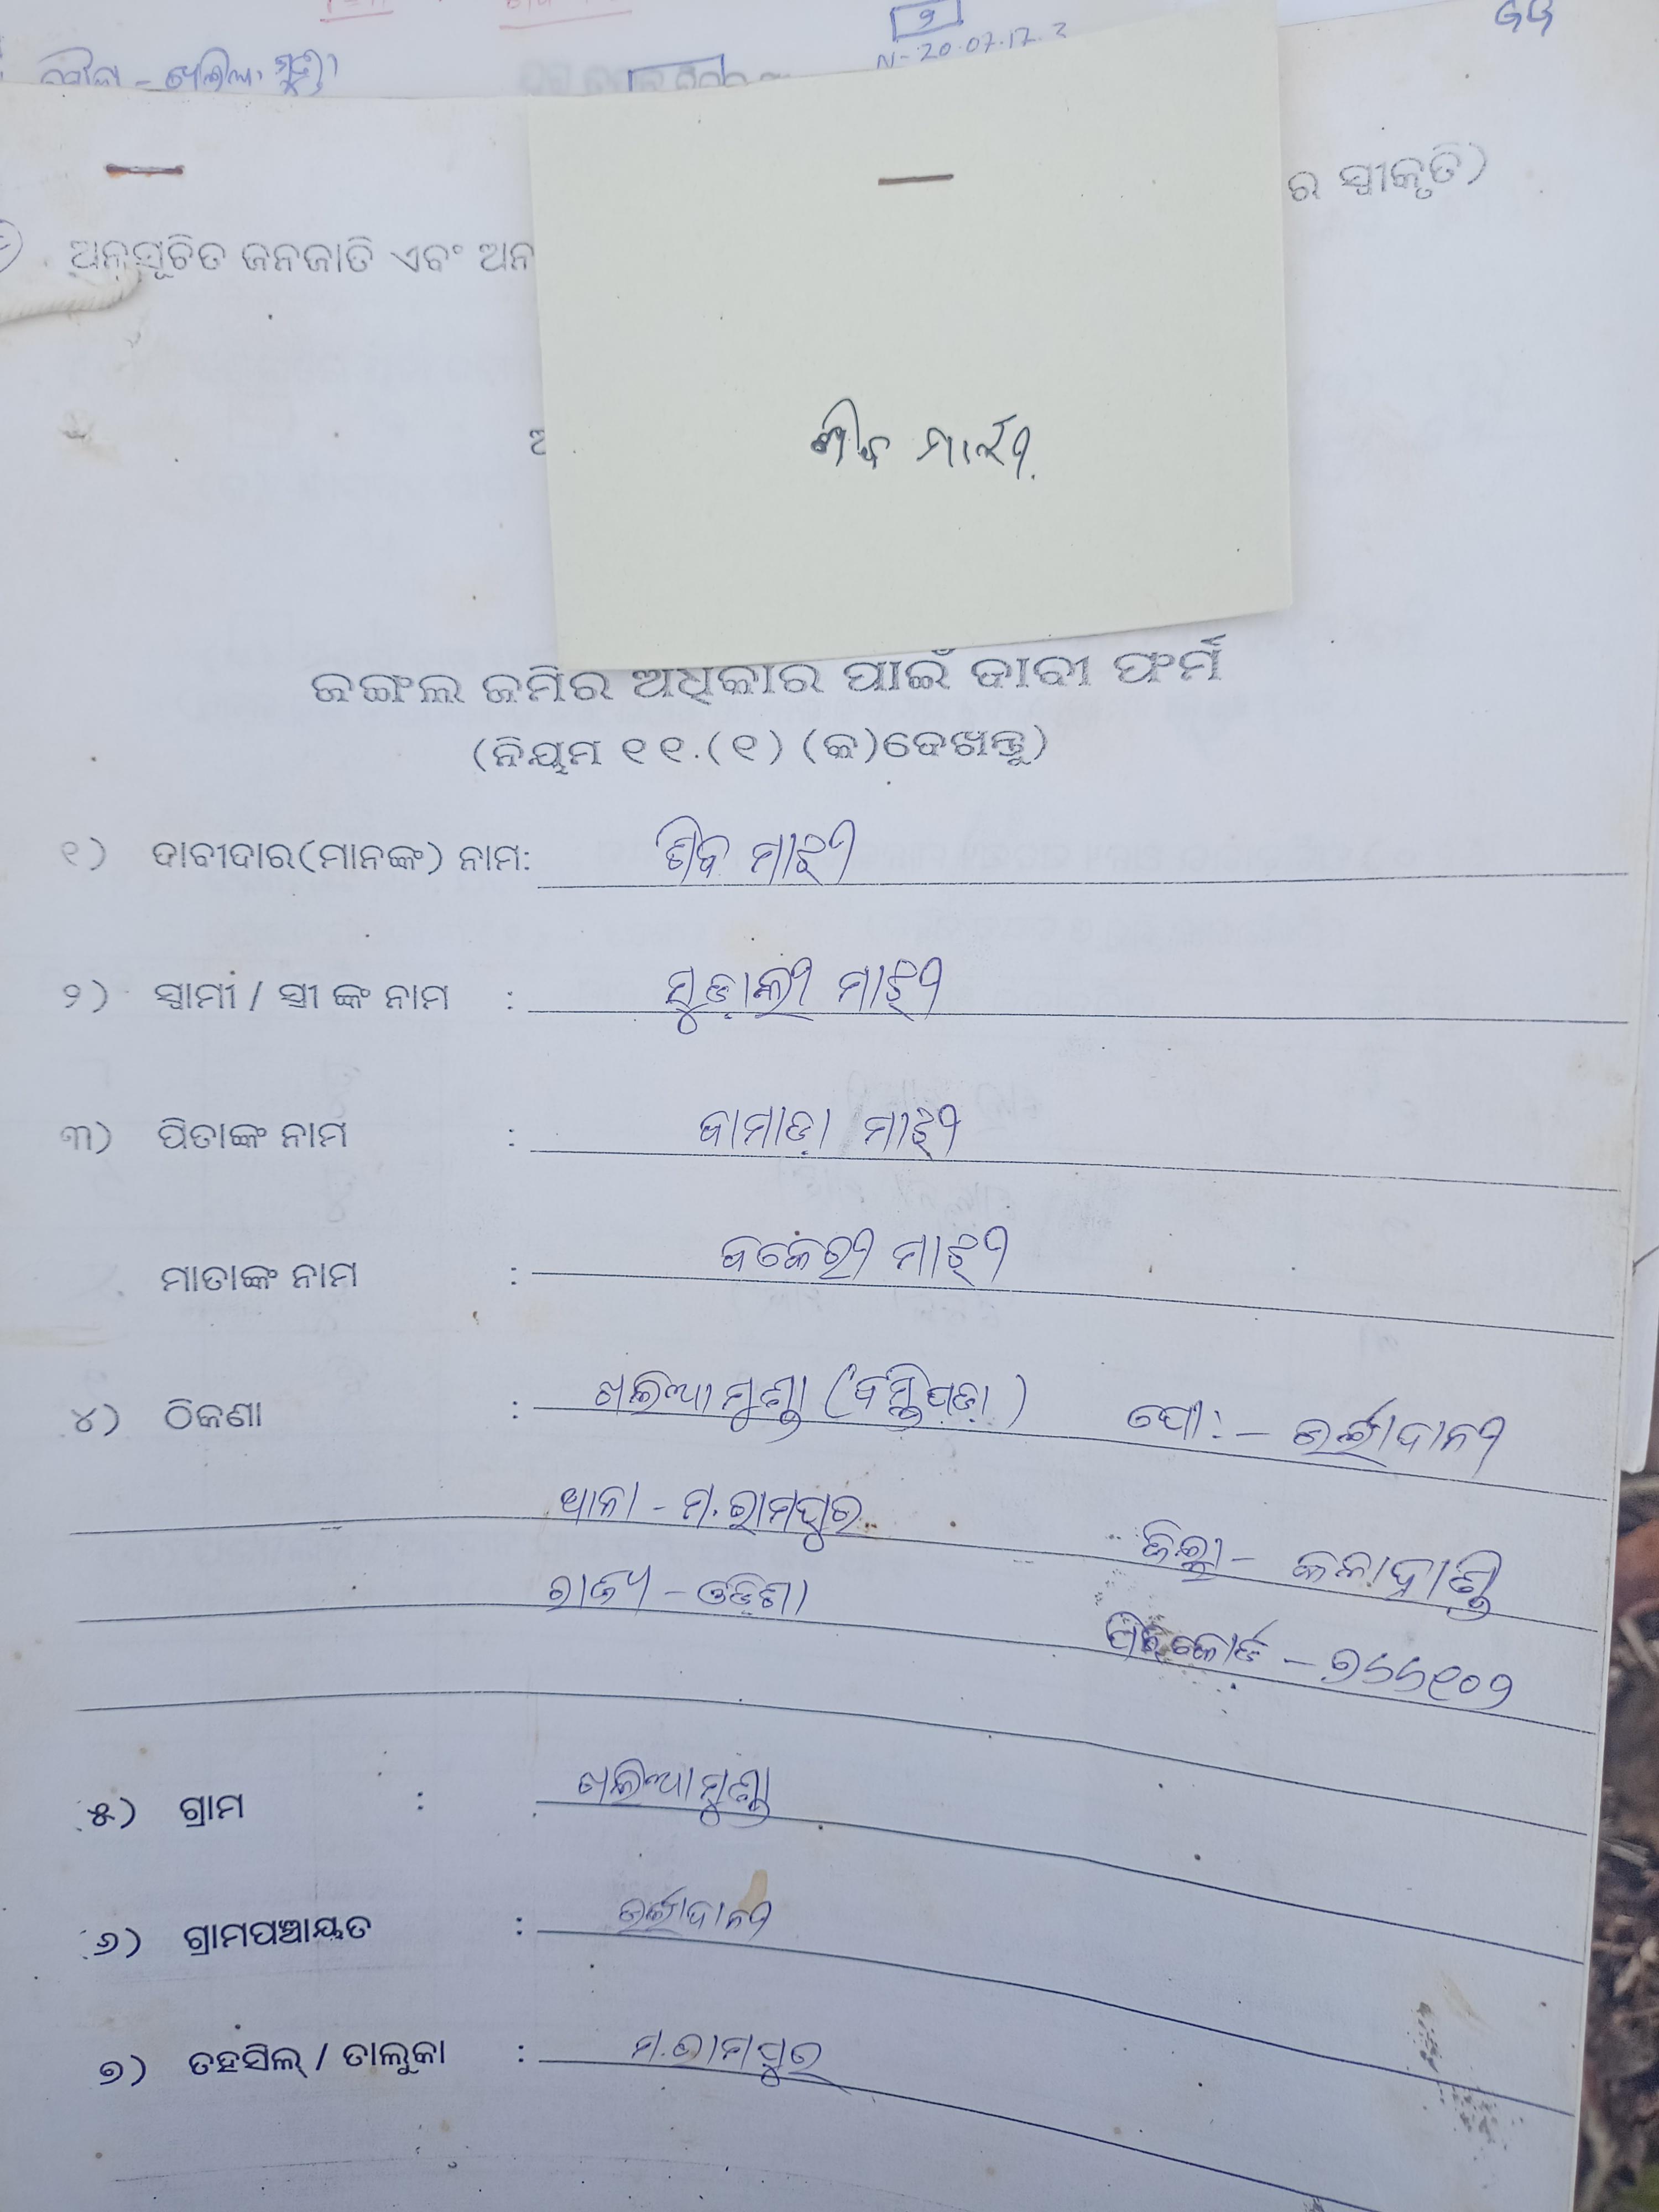 ମୌଜା - ଖଲିଆମୁଣ୍ଡା
୨
N-20.07.17.2
ର ସ୍ୱୀକୃତି)
ଅନୁସୂଚିତ ଜନଜାତି ଏବଂ ଅନ
ଶିବ ମାଝୀ
ଜଙ୍ଗଲ ଜମିର ଅଧିକାର ପାଇଁ ଦାବୀ ଫର୍ମ
(ନିୟମ ୧୧.(୧) (କ)ଦେଖନ୍ତୁ)
୧) ଦାବୀଦାର(ମାନଙ୍କ) ନାମ: ଶିବ ମାଝୀ
୨) ସ୍ୱାମୀ / ସ୍ତ୍ରୀ ଙ୍କ ନାମ : ସୁଡ଼ାଲୀ ମାଝୀ
୩) ପିତାଙ୍କ ନାମ : ବାମାଡ଼ା ମାଝୀ
ମାତାଙ୍କ ନାମ : ବକେରୀ ମାଝୀ
୪) ଠିକଣା : ଖଲିଆମୁଣ୍ଡା (ବସ୍ତିପଡ଼ା) ପୋ:-
ଥାନା - ମ.ରାମପୁର ଜିଲ୍ଲା - କଳାହାଣ୍ଡି
ରାଜ୍ୟ - ଓଡ଼ିଶା ପିନକୋଡ - ୭୬୬୧୦୨
୫) ଗ୍ରାମ : ଖଲିଆମୁଣ୍ଡା
୬) ଗ୍ରାମପଞ୍ଚାୟତ :
୭) ତହସିଲ୍ / ତାଲୁକା : ମ.ରାମପୁର